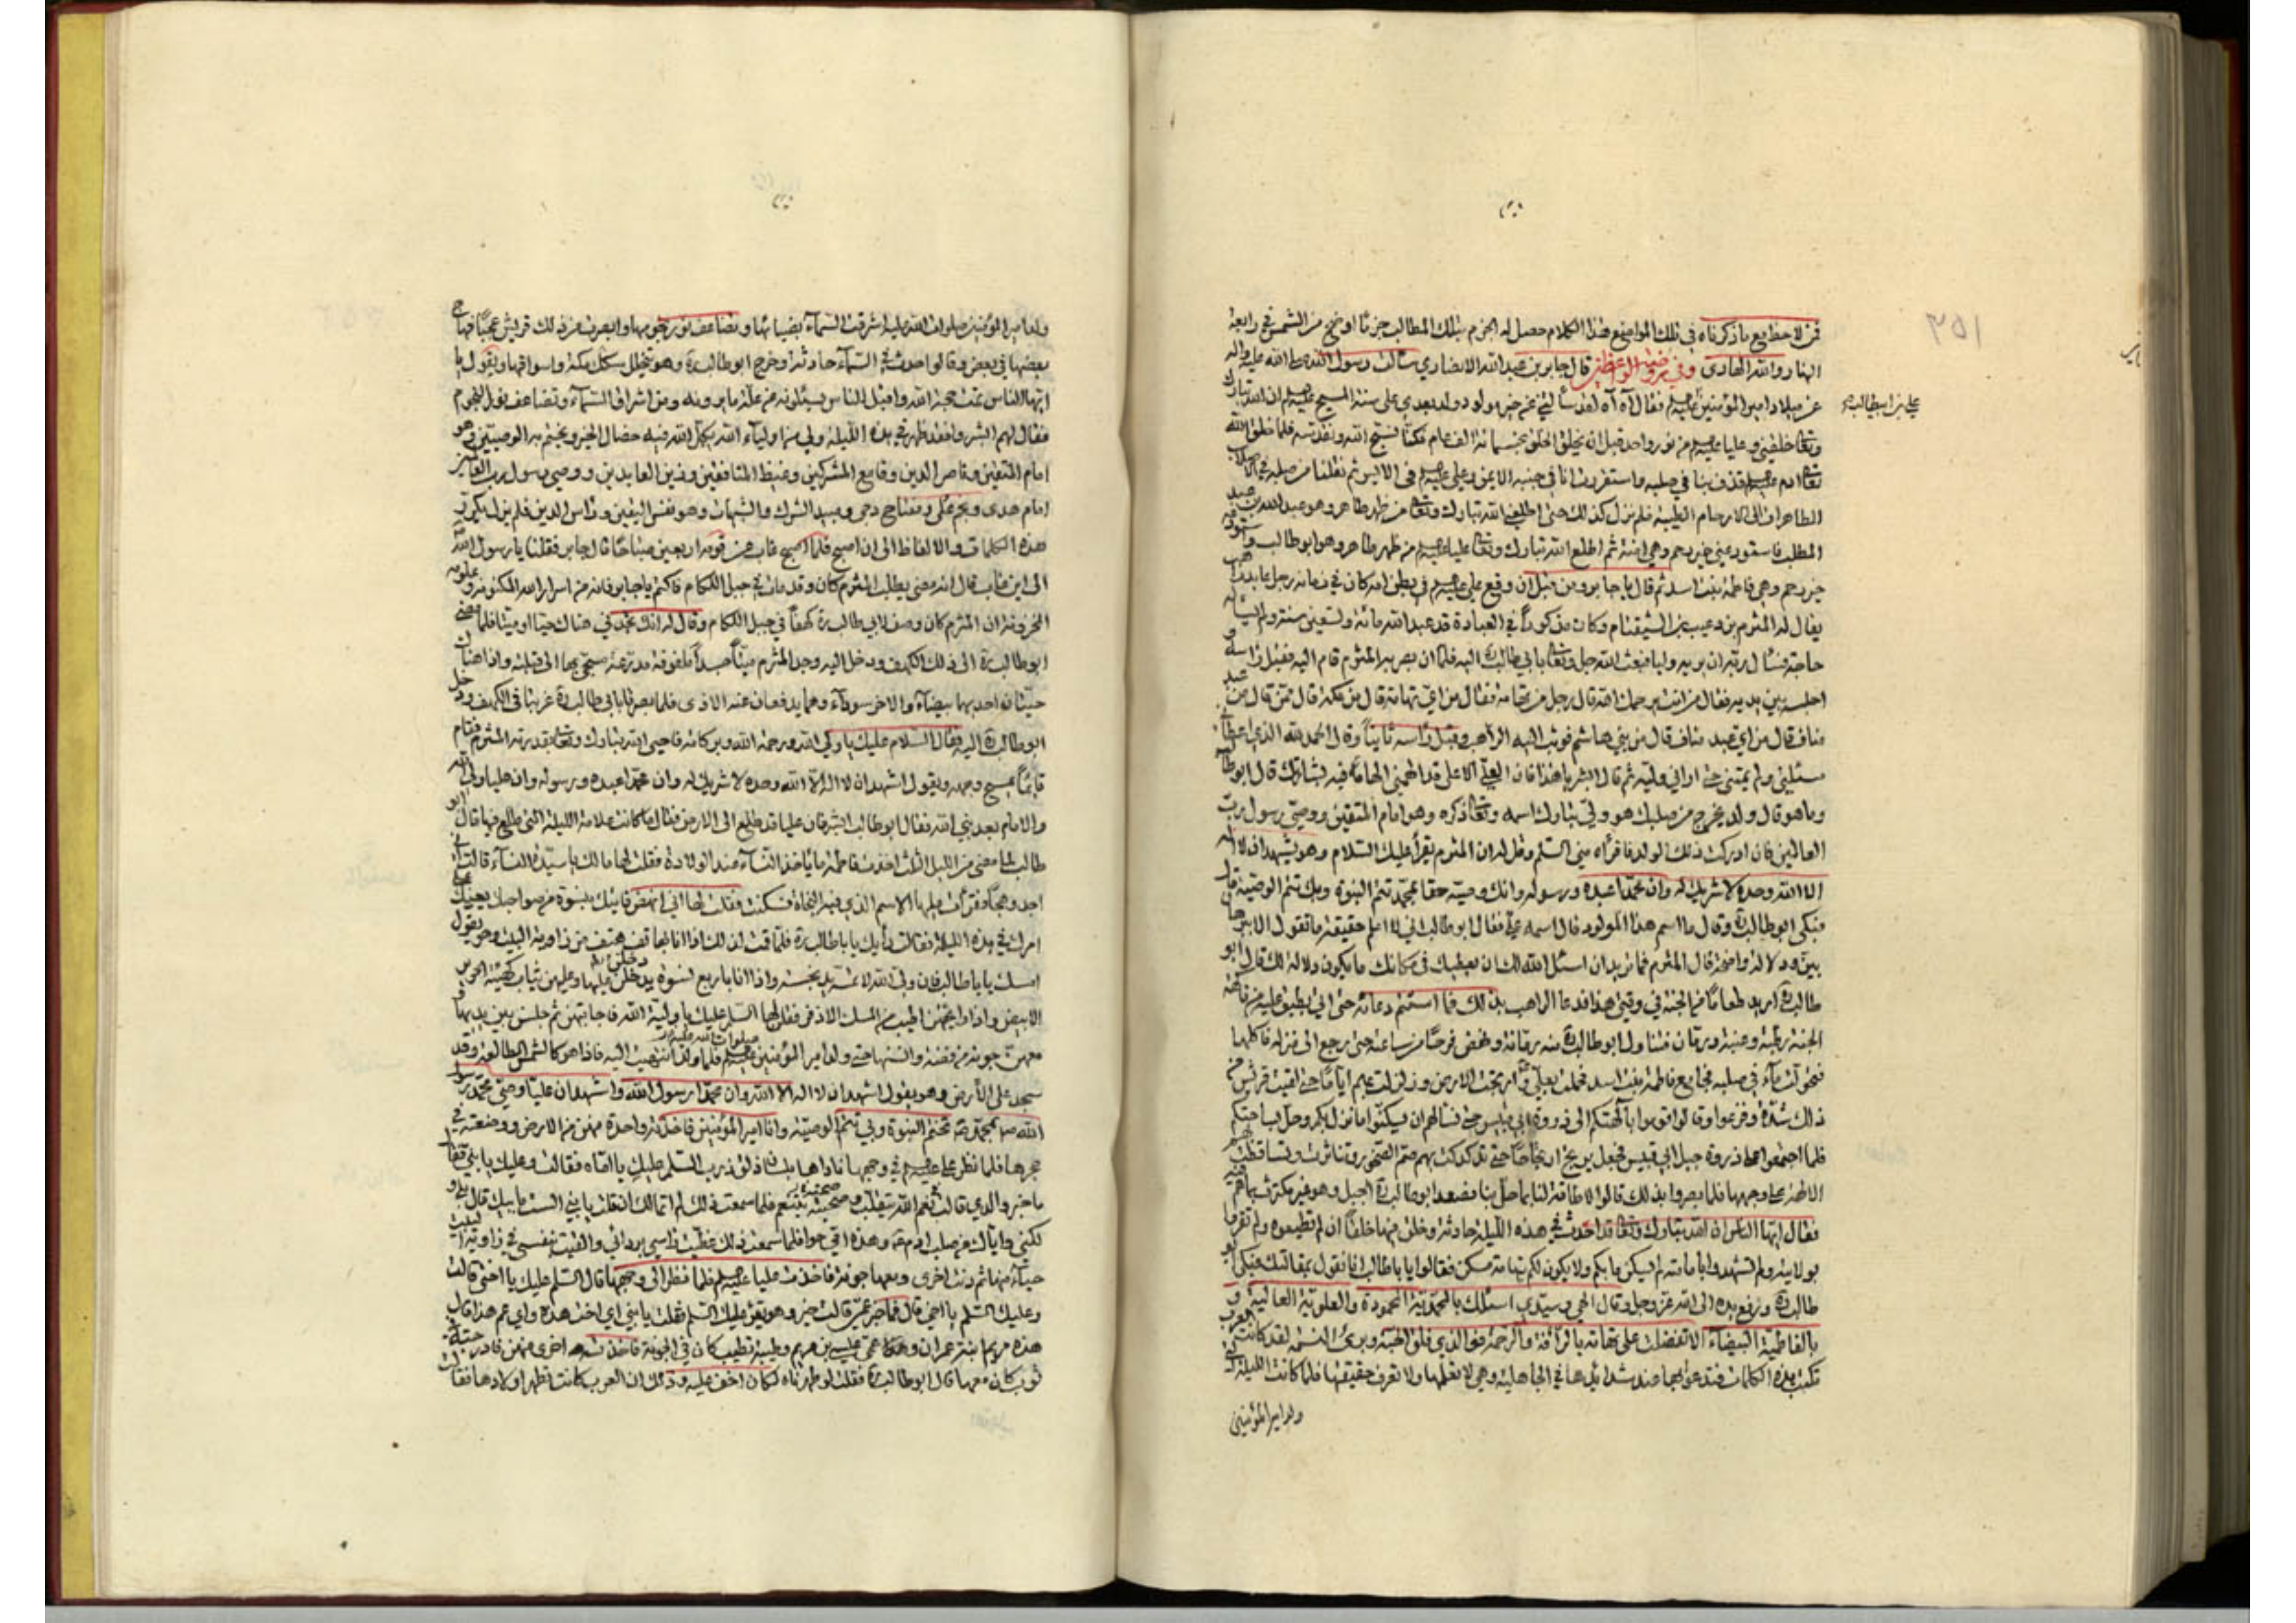 فمن لاحظ مع ما ذكرناه في تلك المواضع هذا الكلام حصل له الجزم بتلك المطالب جزما اوضح من الشمس في رابعة
النهار والله الهادى وفي روضة الواعظين قال جابر بن عبد الله الانصاري سالت رسول الله صلى الله عليه واله
عن ميلاد امير المؤمنين عليهم فقال آه آه لقد سألتني عن خير مولود ولد بعدي على سنة المسيح عليهم ان الله تبارك
علي بن ابيطالب
وتعا خلقني وعليا عليهم من نور واحد قبل ان يخلق الخلق بخمسمائة الف عام فكنا نسبح الله ونقدسه فلما خلق الله
تعا ادم عليهم قذف بنا في صلبه فاستقررت انا في جنبه الايمن وعلي عليهم فى الايسر ثم نقلنا من صلبه في الاصلاب
الطاهرات الى الارحام الطيبة فلم نزل كذلك حتى اطلعني الله تبارك وتعا من ظهر طاهر وهو عبد الله بن عبد
المطلب فاستودعني خير رحم وهي امنة ثم اطلع الله تبارك وتعا عليا عليهم من ظهر طاهر وهو ابو طالب واستودعه
خير رحم وهي فاطمة بنت اسد ثم قال يا جابر ومن قبل ان وقع علي عليهم في بطن امه كان في زمانه رجل عابد راهب
يقال له المثرم بن دعيب بن الشيقتام وكان مذكوراً في العبادة قد عبد الله مائة وتسعين سنة ولم يسأله
حاجة فسأل ربه ان يريه وليا فبعث الله جل وتعا بابي طالب اليه فلما ان بصر به المثرم قام اليه فقبل راسه و
اجلسه بين يديه فقال من انت يرحمك الله قال رجل من تهامة فقال من اي تهامة قال من مكة قال ممن قال من عبد
مناف قال من اي عبد مناف قال من بني هاشم فوثب اليه الراهب وقبل راسه ثانياً وقال الحمد لله الذي اعطاني
مسئلتي ولم يمتني حتى اراني وليه ثم قال ابشر يا هذا فان العلي الاعلى قد الهمني الهاما فيه بشارتك قال ابو طالب
وما هو قال ولد يخرج من صلبك هو ولي تبارك اسمه وتعا ذكره وهو امام المتقين ووصي رسول رب
العالمين فان ادركت ذلك الولد فاقرأه مني السلم وقل له ان المثرم يقرأ عليك السلام وهو يشهد ان لا اله
الا الله وحده لا شريك له وان محمدا عبده ورسوله وانك وصيه حقا بمحمد تتم النبوة وبك تتم الوصية قال
فبكى ابو طالب وقال ما اسم هذا المولود قال اسمه علي فقال ابو طالب اني لا اعلم حقيقة ما تقول الا ببرهان
بين ودلالة واضحة قال المثرم فما تريد ان اسئل الله لك ان يعطيك في مكانك ما يكون دلالة لك قال ابو
طالب اريد طعاما من الجنة في وقتي هذا فدعا الراهب بذلك فما استتم دعائه حتى اتي بطبق عليه من فاكهة
الجنة رطبة وعنبة ورمان فتناول ابو طالب منه رمانة ونهض فرحا من ساعته حتى رجع الى منزله فاكلها
فتحولت ماء في صلبه فجامع فاطمة بنت اسد فحملت بعلي وارتجت الارض وزلزلت بهم اياما حتى لقيت قريش من
ذلك شدة وفزعوا وقالوا قوموا بآلهتكم الى ذروة ابي قبيس حتى نسالهم ان يسكنوا ما نزل بكم وحل بساحتكم
فلما اجتمعوا على ذروة جبل ابي قبيس فجعل يرتج ارتجاجا حتى تدكدكت بهم صم الصخور وتناثرت وتساقطت
الالهة على وجهها فلما بصروا بذلك قالوا لا طاقة لنا بما حل بنا فصعد ابو طالب الجبل وهو غير مكترث بما هم فيه
فقال ايها الناس ان الله تبارك وتعا قد احدث في هذه الليلة حادثة وخلق فيها خلقا ان لم تطيعوه ولم تقروا
بولايته ولم تشهدوا بامامته لم يسكن ما بكم ولا يكون لكم بتهامة مسكن فقالوا يا باطالب انا نقول بمقالتك فبكى ابو
طالب ورفع يده الى الله عز وجل وقال الهي وسيدي اسئلك بالمحمدية المحمودة والعلوية العالية و
بالفاطمية البيضاء الا تفضلت على تهامة بالرأفة والرحمة فوالذي فلق الحبة وبرئ النسمة لقد كانت العرب
تكتب هذه الكلمات فتدعوا بها عند شدائدها في الجاهلية وهي لا تعلمها ولا تعرف حقيقتها فلما كانت الليلة التي
ولد امير المؤمنين
ولد امير المؤمنين صلوات الله عليه اشرقت السماء بضيائها وتضاعف نور نجومها وابصرت من ذلك قريش عجبا فهاج
بعضها في بعض وقالوا احدث في السماء حادثة وخرج ابو طالب وهو يتخلل سكك مكة واسواقها ويقول يا
ايها الناس تمت حجة الله واقبل الناس يسئلونه عن علة ما يرونه من اشراق السماء وتضاعف نور النجوم
فقال لهم ابشروا فقد ظهر في هذه الليلة ولي من اولياء الله يكمل الله فيه خصال الخير ويختم به الوصيين وهو
امام المتقين وناصر الدين وقامع المشركين وغيظ المنافقين وزين العابدين ووصي رسول رب العالمين
امام هدى ونجم على ومفتاح دجى ومبيد الشرك والشبهات وهو نفس اليقين وراس الدين فلم يزل يكرر
هذه الكلمات والالفاظ الى ان اصبح فلما اصبح غاب عن قومه اربعين صباحا قال جابر فقلنا يا رسول الله
الى اين غاب قال انه مضى يطلب المثرم كان وقد مات في جبل اللكام فاكتم يا جابر فانه من اسرار الله المكنونة وعلومه
المخزونة ان المثرم كان وصف لابي طالب كهفاً في جبل اللكام وقال له انك تجدني هناك حيا او ميتا فلما مضى
ابو طالب الى ذلك الكهف ودخل اليه وجد المثرم ميتاً جسداً ملفوفة مدرعته مسجى بها الى قبلته واذا هناك
حيتان احديهما بيضاء والاخرى سوداء وهما يدفعان عنه الاذى فلما بصرتا بابي طالب غربتا في الكهف ودخل
ابو طالب اليه فقال السلام عليك يا ولي الله ورحمة الله وبركاته فاحيى الله تبارك وتعا بقدرته المثرم فقام
قائماً يمسح وجهه ويقول اشهد ان لا اله الا الله وحده لا شريك له وان محمدا عبده ورسوله وان عليا ولي الله
والامام بعد نبي الله فقال ابو طالب ابشر فان عليا قد طلع الى الارض فقال ما كانت علامة الليلة التي طلع فيها قال ابو
طالب لما مضى من الليل الثلث اخذت فاطمة ما ياخذ النساء عند الولادة فقلت لها ما لك يا سيدة النساء قالت اني
اجد وهجا فقرأت عليها الاسم الذي فيه النجاة فسكنت فقلت لها اني انهض فاتيك بنسوة من صواحبك يعينك على
امرك في هذه الليلة فقالت رأيك يا باطالب فلما قمت لذلك اذا انا بهاتف هتف من زاوية البيت وهو يقول
امسك يا باطالب فان ولي الله لا تمسه يد نجسة واذا انا باربع نسوة يدخلن عليها وعليهن ثياب كهيئة الحرير
دخلن
الابيض واذا رائحتهن اطيب من المسك الاذفر فقلن لها السلم عليك يا ولية الله فاجابتهن ثم جلسن بين يديها و
معهن جونة من فضة وانسنها حتى ولد امير المؤمنين عليهم فلما ولد انتهيت اليه فاذا هو كالشمس الطالعة وقد
صلوات الله عليه
سجد على الارض وهو يقول اشهد ان لا اله الا الله وان محمدا رسول الله واشهد ان عليا وصي محمد رسول
الله بمحمد تختم النبوة وبي تتم الوصية وانا امير المؤمنين فاخذته واحدة منهن من الارض ووضعته في
حجرها فلما نظر علي عليهم في وجهها ناداها بلسان ذلق ذرب السلم عليك يا اماه فقالت وعليك يا بني فقال
ما خبر والدي قالت في نعم الله يتقلب وصحبته يتنعم فلما سمعت ذلك لم اتمالك ان قلت يا بني الست بابيك قال بلى و
لكني واياك من صلب ادم وهذه امي حوا فلما سمعت ذلك غطيت راسي بردائي والقيت نفسي في زاوية البيت
حياء منها ثم دنت اخرى ومعها جونة فاخذت عليا عليهم فلما نظر الى وجهها قال السلم عليك يا اختي قالت
وعليك السلم يا اخي قال فما خبر عمي قالت خير وهو يقرء عليك السلم فقلت يا بني اي اخت هذه واي عم هذا قال
هذه مريم ابنة عمران وعمي عيسى بن مريم وطيبته بطيب كان في الجونة فاخذته اخرى منهن فادرجته في
ثوب كان معها قال ابو طالب فقلت لو طهرناه لكان اخف عليه وذلك ان العرب كانت تطهر اولادها فقالت